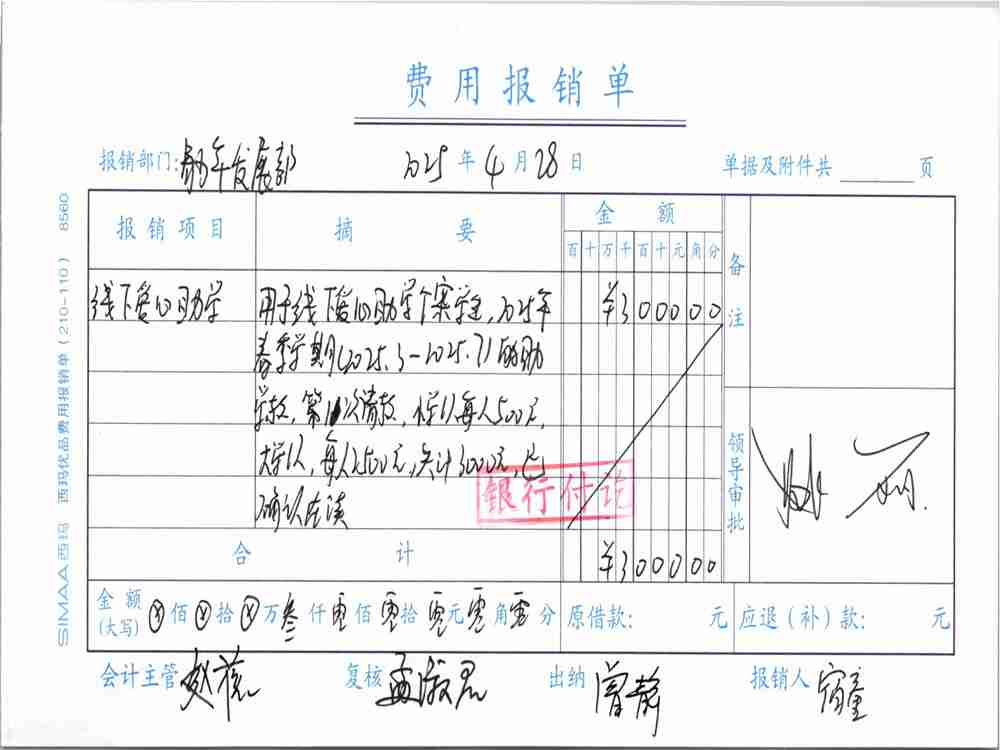 费用报销单
报销部门: 助学发展部 2025 年 4 月 28 日 单据及附件共 页
报销项目 摘要 金额 备注
百 十 万 千 百 十 元 角 分
线下爱心助学 用于线下爱心助学个案学生,2025年 ¥300000
春季学期(2025.3-2025.7)的助
学款,第 次请款,小学1人每人500元,
大学1人,每人2500元,共计3000元,已
确认在读
银行付讫
领导审批
合计 ¥300000
金额(大写) ⊗ 佰 ⊗ 拾 ⊗ 万 叁 仟 零 佰 零 拾 零 元 零 角 零 分 原借款: 元 应退(补)款: 元
会计主管 复核 孟淑君 出纳 曾静 报销人
SIMAA 西玛 西玛优品费用报销单(210-110) 8560